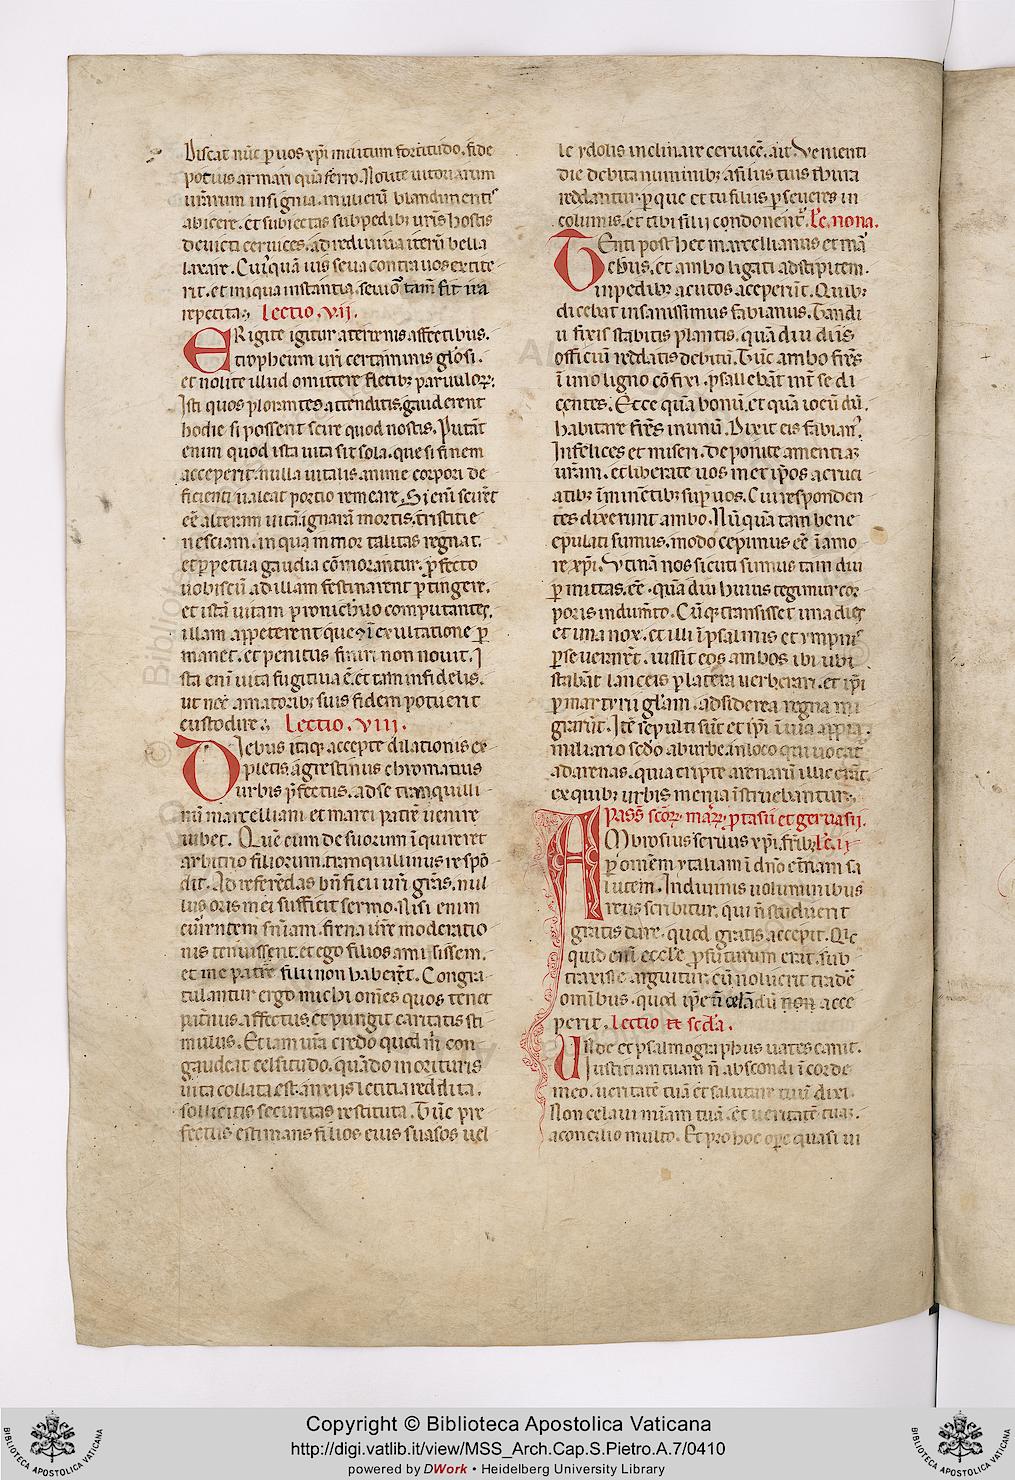 Discat nūc ꝑ uos xp̄i militum fortitudo. fide
potius armari quā ferro. Nolite uitoriarum
urārum insignia. mulierū blandimentis
abicere. et subiectas sub pedibꝫ uris hostis
deuicti ceruices. ad rediuiua iterū bella
laxare. Cui᷒quā ius seua contra uos exerce
rit. et iniqua instantia. seuior tam̄ fit ira
repetita. Lectio. vii.
ERigite igitur a terrenis affectibus.
tropheum urī certaminis glōsi.
et nolite illud omittere fletibꝫ paruuloꝝ.
Isti quos plorantes attenditis. gauderent
hodie si possent scire quod nostis. Putāt
enim quod ista uita sit sola. que si finem
acceperit. nulla uitalis anime corpori de
ficienti ualeat portio remeare. Si enī scirēt
eē alteram uitā ignarā mortis. tristitie
nesciam. in qua inmortalitas regnat.
et ꝑpetua gaudia cōmorantur. ꝓfecto
uobiscū ad illam festinarent ꝑtingere.
et istā uitam pro nichilo computantes.
illam appeterent que in exultatione ꝑ
manet. et penitus finiri non nouit. I
sta enī uita fugitiua ē. et tam infidelis.
ut nec amatoribꝫ suis fidem potuerit
custodire. Lectio. viii.
DIebus itaqꝫ accepte dilationis ex
pletis. agrestinus chromatius
urbis p̄fectus. ad se tranquilli
nū marcelliani et marci patrē uenire
iubet. Quē cum de suorum īquireret
arbitrio filiorum. tranquillinus respō
dit. Ad referēdas bn̄ficii urī grās. nul
lus oris mei sufficit sermo. Nisi enim
currentem sn̄iam. frena urē moderatio
nis tenuissent. et ego filios amisissem.
et me patrē filii non haberēt. Congra
tulantur ergo michi om̄es quos tenet
patrius affectus. et pungit caritatis sti
mulus. Etiam urā credo quod m̄ con
gaudeat celsitudo. quādo morituris
uita collata est. anxiis letitia reddita.
sollicitis securitas restituta. Tūc pre
fectus estimans filios eius suasos uel
le ydolis inclinare ceruicē. ait. Venienti
die debita numinibꝫ a filiis tuis thura
reddantur. ꝑ que et tu filiis ꝑseueres in
columis. et tibi filii condonent᷑. Lc̄. nona.
TEnti post hec marcellianus et mar
chus. et ambo ligati ad stipitem.
in pedibꝫ acutos acceperūt. Quibꝫ
dicebat insanissimus fabianus. Tandi
u fixis stabitis plantis. quā diu diis
officiū reddatis debitū. Tūc ambo frēs
ī uno ligno cōfixi. psallebāt int̄ se di
centes. Ecce quā bonū. et quā iocūdū.
habitare frēs in unū. Dixit eis fabian᷒.
Infelices et miseri. deponite amentiaꝫ
urām. et liberate uos metip̄os a cruci
atibꝫ īminētibꝫ sup uos. Cui responden
tes dixerunt ambo. Nūquā tam bene
epulati sumus. modo cepimus eē ī amo
re xp̄i. Vtinā nos sicuti sumus tam diu
ꝑmittas. eē. quā diu huius tegimur cor
poris indumto. Cūqꝫ transisset una dies
et una nox. et illi ī psalmis et ympnis
ꝑseuerarēt. iussit eos ambos ibi ubi
stabāt lanceis ꝑ latera uerberari. et ip̄i
ꝑ martyrii glām. ad siderea regna mi
grarūt. Itē sepulti sūt et ip̄i ī uia appia.
miliario sc̄do ab urbe. in loco qui uocat᷑
ad arenas. quia cripte arenarū illic erāt.
ex quibꝫ urbis menia īstruebantur.
Pass̄ scōꝝ. marꝝ. ꝓtasii et geruasii.
AMbrosius seruus xp̄i. frībꝫ Lc̄. i
ꝑ om̄em ytaliam ī dn̄o etn̄am sa
lutem. In diuinis uoluminibus
reus scribitur. qui n̄ studuerit
gratis dare. quod gratis accepit. Qic
quid enī eccl̄e ꝓfuturum erat. sub
traxisse arguitur. cū noluerit tradē
omībus. quod ip̄e n̄ celādū non acce
perit. Lectio sc̄da.
Unde et psalmographus uates canit.
Iustitiam tuam n̄ abscondi ī corde
meo. ueritatē tuā et salutare tuū dixi.
Non celaui mīam tuā. et ueritatē tuaꝫ.
a concilio multo. Et pro hoc opē quasi ui
Copyright © Biblioteca Apostolica Vaticana
http://digi.vatlib.it/view/MSS_Arch.Cap.S.Pietro.A.7/0410
powered by DWork • Heidelberg University Library
BIBLIOTECA APOSTOLICA VATICANA
BIBLIOTECA APOSTOLICA VATICANA